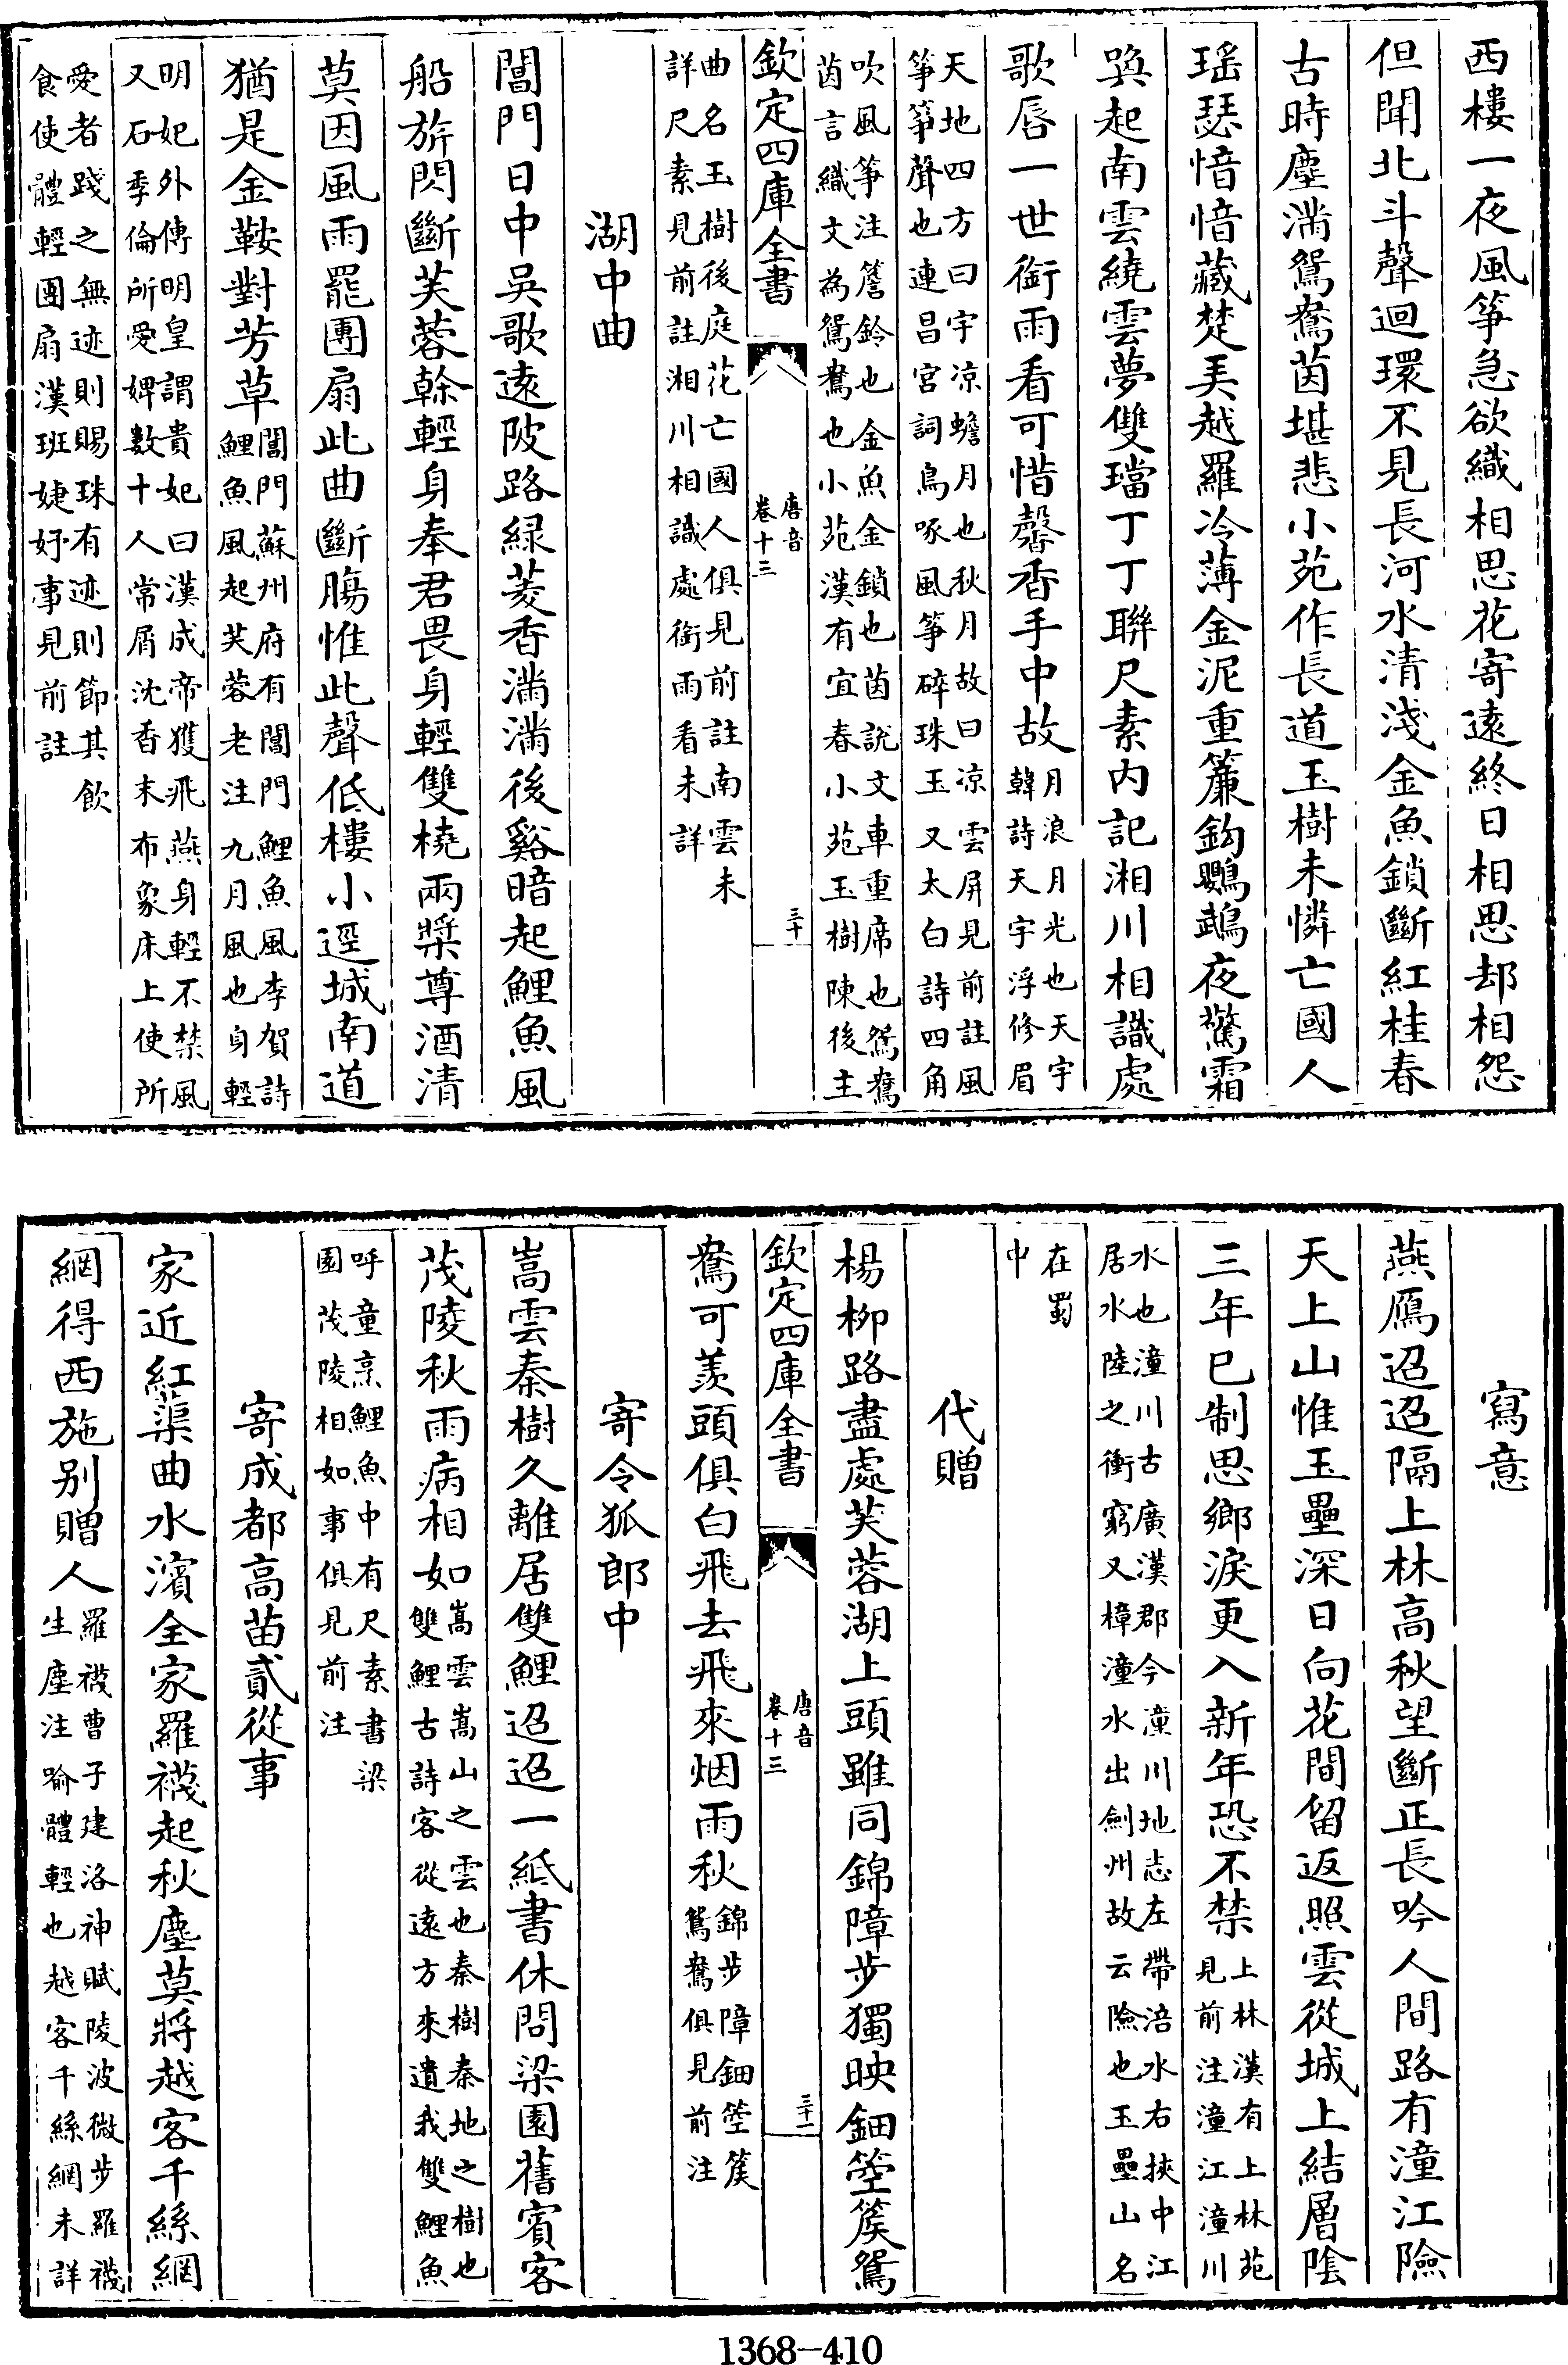 西樓一夜風箏急欲織相思花寄遠終日相思却相怨
但聞北斗聲迴環不見長河水清淺金魚鎖斷紅桂春
古時塵滿鴛鴦茵堪悲小苑作長道玉樹未憐亡國人
瑶瑟愔愔藏楚弄越羅冷薄金泥重簾鈎鸚鵡夜驚霜
喚起南雲繞雲夢雙璫丁丁聯尺素内記湘川相識處
歌唇一世銜雨看可惜馨香手中故月浪月光也天宇
韓詩天宇浮修眉
天地四方曰宇凉蟾月也秋月故曰凉雲屏見前註風
箏箏聲也連昌宫詞鳥啄風箏碎珠玉又太白詩四角
吹風箏注簷鈴也金魚金鎖也茵説文車重席也鴛鴦
茵言織文為鴛鴦也小苑漢有宜春小苑玉樹陳後主
欽定四庫全書
唐音
卷十三
三十
曲名玉樹後庭花亡國人俱見前註南雲未
詳尺素見前註湘川相識處銜雨看未詳
湖中曲
閶門日中吳歌遠陂路緑菱香滿滿後谿暗起鯉魚風
船旂閃斷芙蓉榦輕身奉君畏身輕雙橈兩槳尊酒清
莫因風雨罷團扇此曲斷腸惟此聲低樓小逕城南道
猶是金鞍對芳草閶門蘇州府有閶門鯉魚風李賀詩
鯉魚風起芙蓉老注九月風也身輕
明妃外傳明皇謂貴妃曰漢成帝獲飛燕身輕不禁風
又石季倫所愛婢數十人常屑沈香末布象床上使所
愛者踐之無迹則賜珠有迹則節其飲
食使體輕團扇漢班婕妤事見前註
寫意
燕鴈迢迢隔上林高秋望斷正長吟人間路有潼江險
天上山惟玉壘深日向花間留返照雲從城上結層陰
三年已制思鄉淚更入新年恐不禁上林漢有上林苑
見前注潼江潼川
水也潼川古廣漢郡今潼川地志左帶涪水右挾中江
居水陸之衝窮又樟潼水出劍州故云險也玉壘山名
在蜀
中
代贈
楊柳路盡處芙蓉湖上頭雖同錦障步獨映鈿箜篌鴛
欽定四庫全書
唐音
卷十三
三十一
鴦可羡頭俱白飛去飛來烟雨秋錦步障鈿箜篌
鴛鴦俱見前注
寄令狐郎中
嵩雲秦樹久離居雙鯉迢迢一紙書休問梁園舊賓客
茂陵秋雨病相如嵩雲嵩山之雲也秦樹秦地之樹也
雙鯉古詩客從遠方來遺我雙鯉魚
呼童烹鯉魚中有尺素書梁
園茂陵相如事俱見前注
寄成都高苗貳從事
家近紅蕖曲水濱全家羅襪起秋塵莫將越客千絲網
網得西施别贈人羅襪曹子建洛神賦陵波微步羅襪
生塵注喻體輕也越客千絲網未詳
1368-410